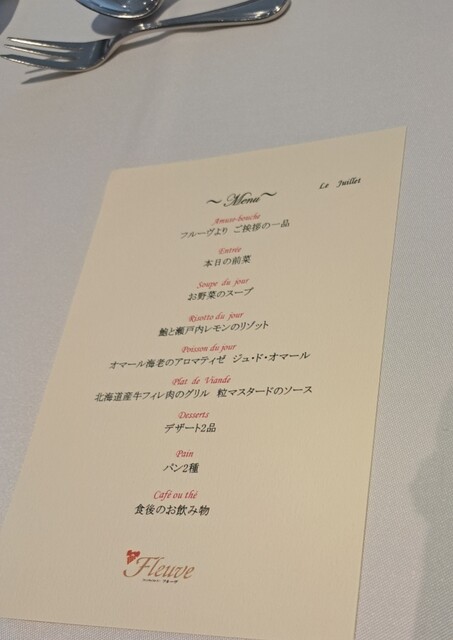 Le Juillet
～Menu～
Amuse-bouche
フルーヴより ご挨拶の一品
Entrée
本日の前菜
Soupe du jour
お野菜のスープ
Risotto du jour
鮑と瀬戸内レモンのリゾット
Poisson du jour
オマール海老のアロマティゼ ジュ・ド・オマール
Plat de Viande
北海道産牛フィレ肉のグリル 粒マスタードのソース
Desserts
デザート2品
Pain
パン2種
Café ou thé
食後のお飲み物
Fleuve